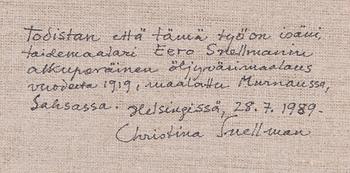 Todistan että tämä työ on isäni,
taidemaalari Eero Snellmannin
alkuperäinen öljyvärimaalaus
vuodelta 1919, maalattu Murnaussa,
Saksassa. Helsingissä, 28.7.1989.
Christina Snellman